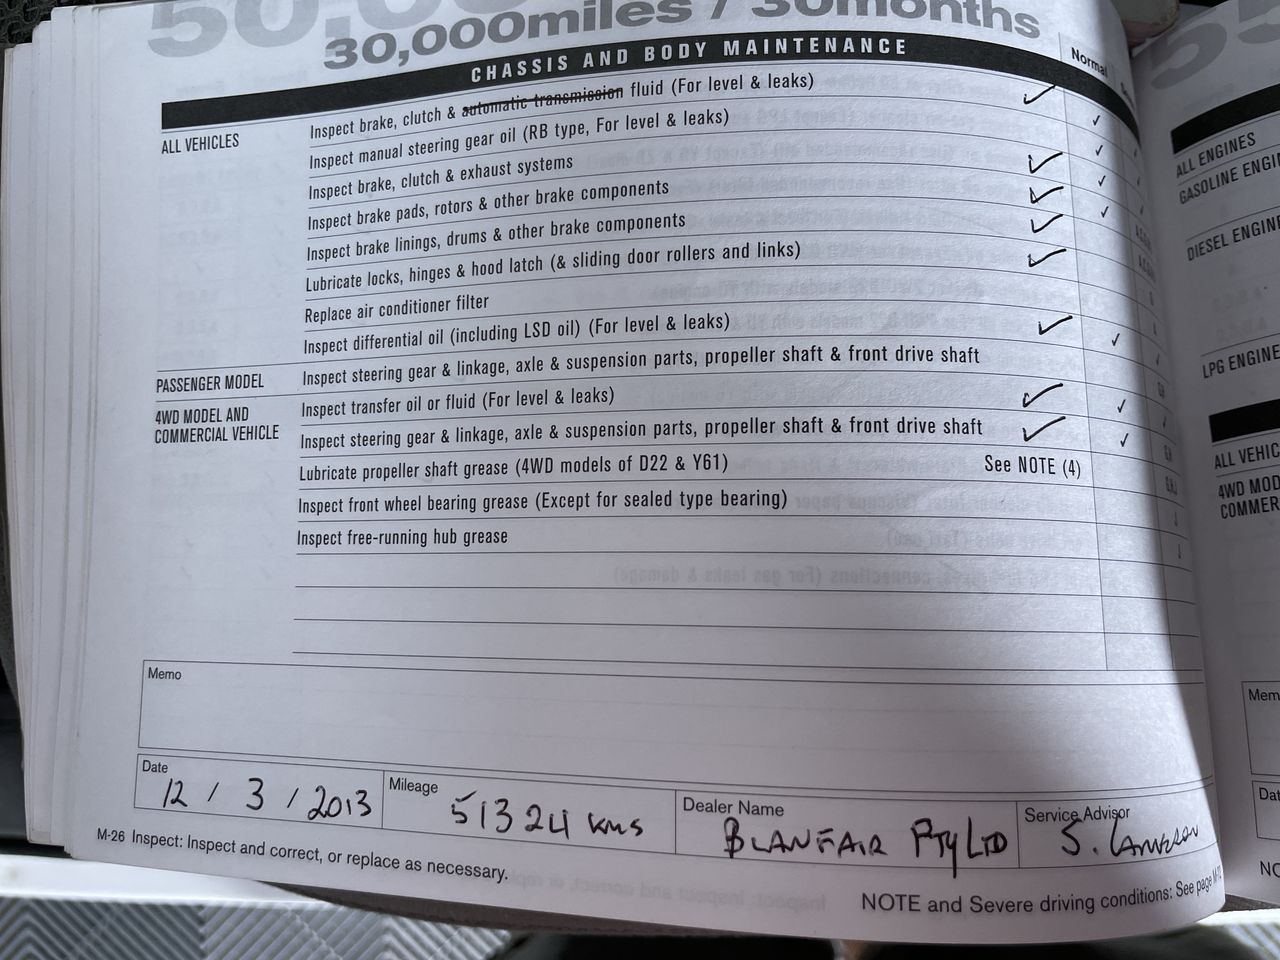 50,0
30,000miles / 30months
CHASSIS AND BODY MAINTENANCE
Normal
ALL VEHICLES
Inspect brake, clutch & automatic transmission fluid (For level & leaks) ✓ ✓
Inspect manual steering gear oil (RB type, For level & leaks) ✓
Inspect brake, clutch & exhaust systems ✓ ✓
Inspect brake pads, rotors & other brake components ✓ ✓
Inspect brake linings, drums & other brake components ✓
Lubricate locks, hinges & hood latch (& sliding door rollers and links) ✓
Replace air conditioner filter
Inspect differential oil (including LSD oil) (For level & leaks) ✓ ✓
PASSENGER MODEL
Inspect steering gear & linkage, axle & suspension parts, propeller shaft & front drive shaft
4WD MODEL AND
COMMERCIAL VEHICLE
Inspect transfer oil or fluid (For level & leaks) ✓ ✓
Inspect steering gear & linkage, axle & suspension parts, propeller shaft & front drive shaft ✓ ✓
Lubricate propeller shaft grease (4WD models of D22 & Y61) See NOTE (4)
Inspect front wheel bearing grease (Except for sealed type bearing)
Inspect free-running hub grease
Memo
Date
12 / 3 / 2013
Mileage
51324 kms
Dealer Name
BLANFAIR PTY LTD
Service Advisor
S.
M-26 Inspect: Inspect and correct, or replace as necessary.
NOTE and Severe driving conditions: See page
55
ALL ENGINES
GASOLINE ENGI
DIESEL ENGINE
LPG ENGINE
ALL VEHIC
4WD MOD
COMMER
Mem
Dat